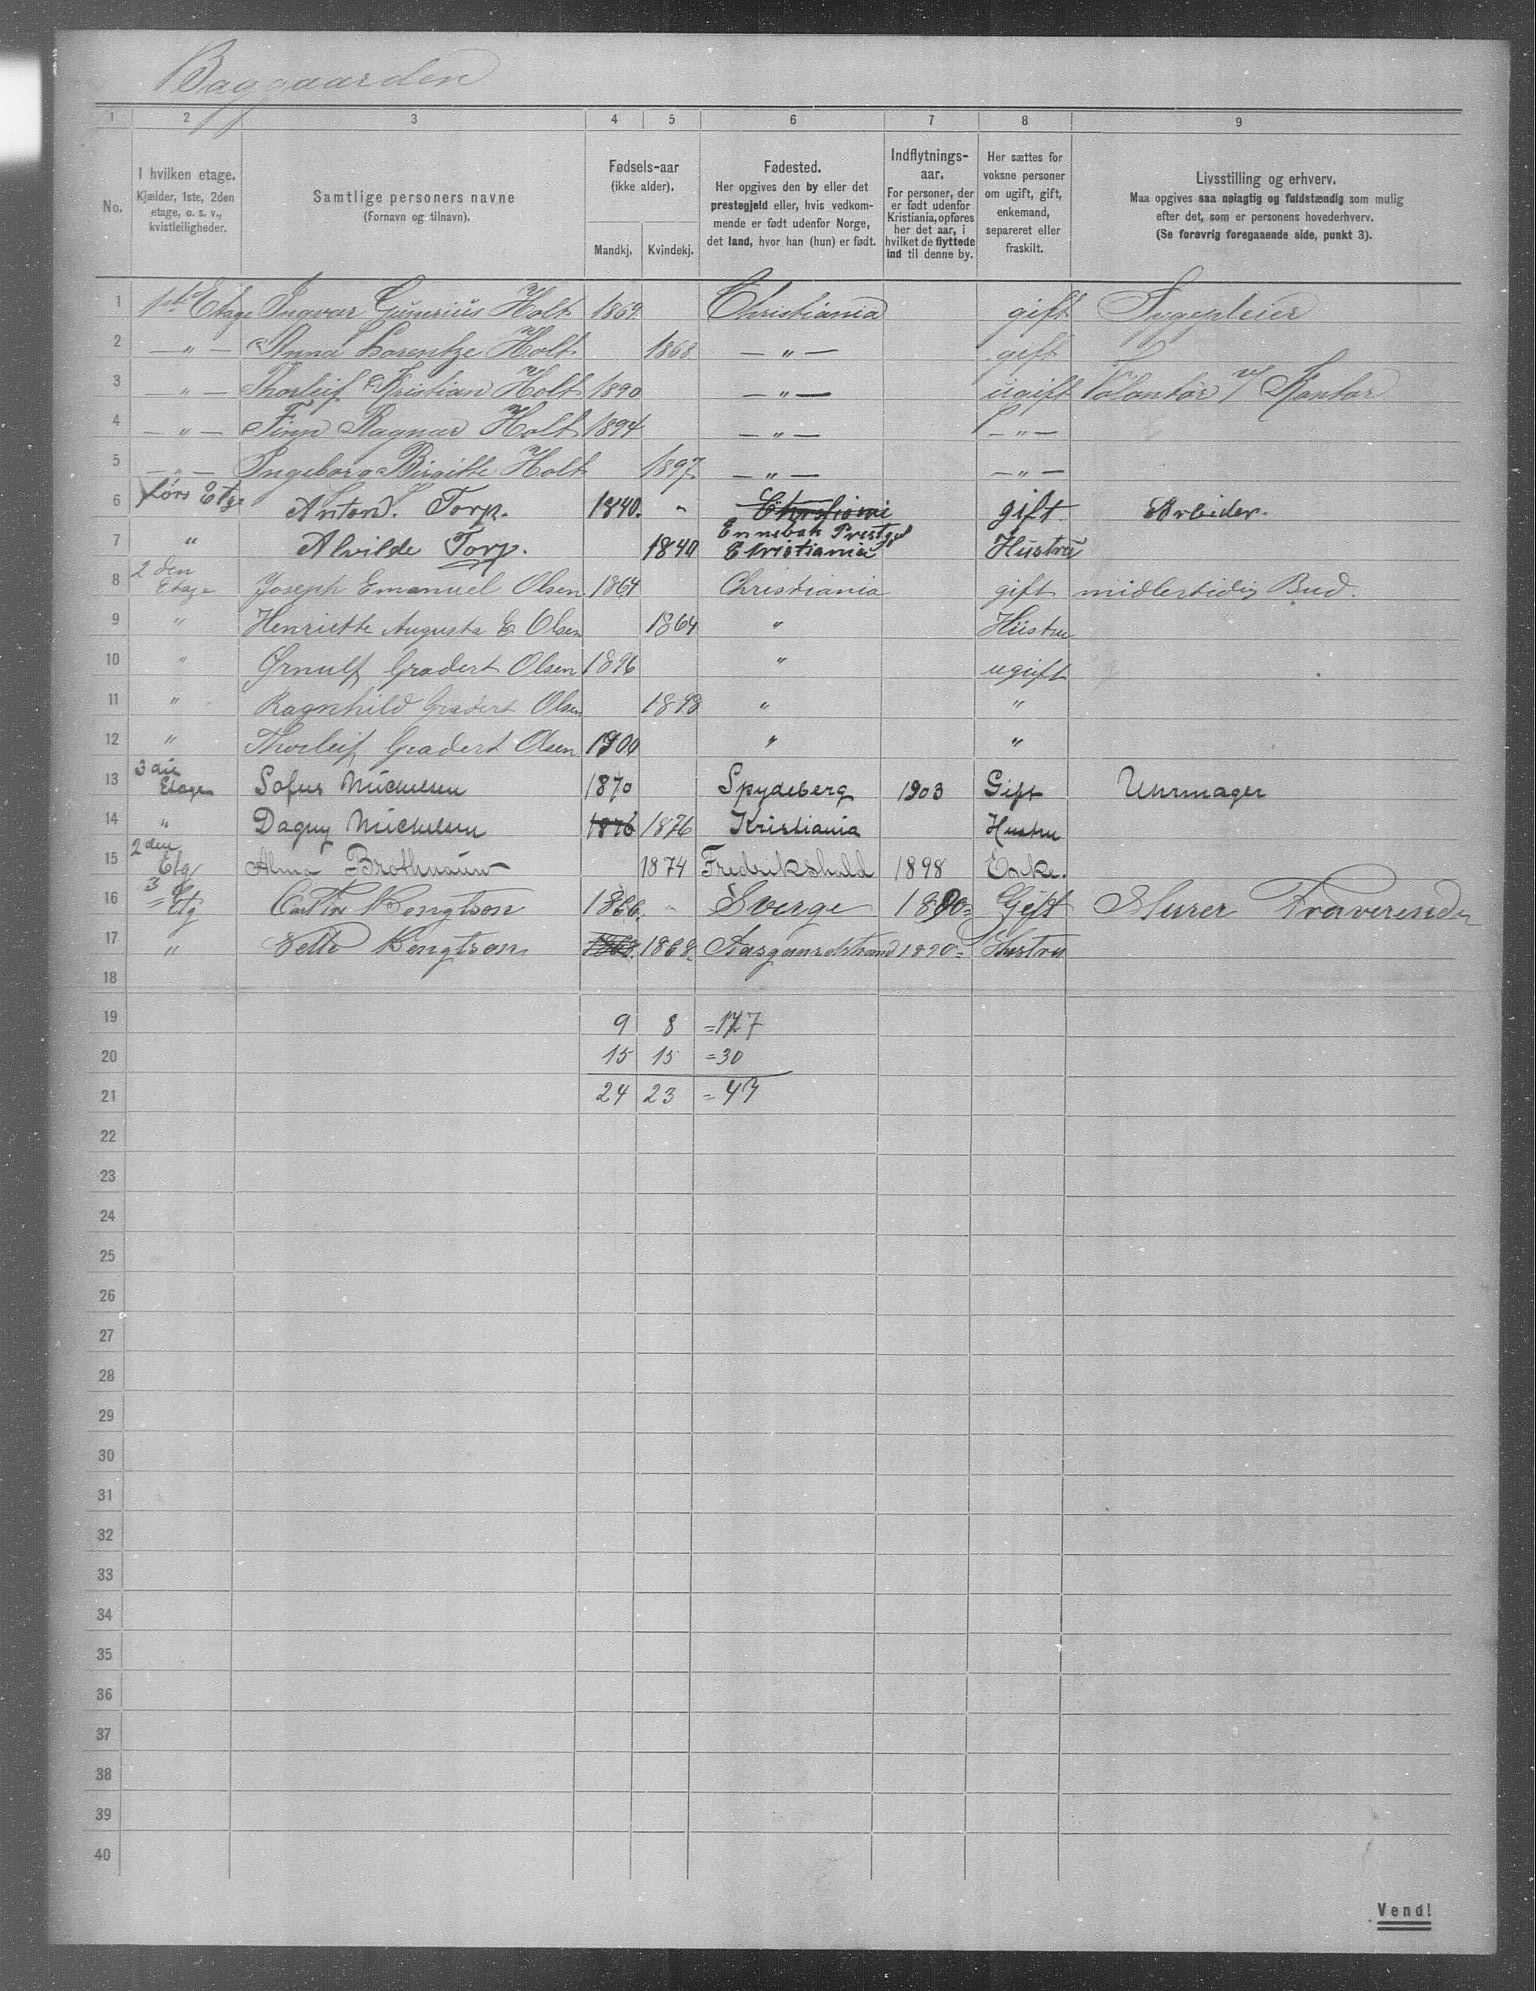 Baggaarden
1 2 3 4 5 6 7 8 9
No.
I hvilken etage.
Kjælder, 1ste, 2den
etage, o. s. v.,
kvistleiligheder.
Samtlige personers navne
(Fornavn og tilnavn).
Fødsels-aar
(ikke alder).
Mandkj. Kvindekj.
Fødested.
Her opgives den by eller det
prestegjeld eller, hvis vedkom-
mende er født udenfor Norge,
det land, hvor han (hun) er født.
Indflytnings-
aar.
For personer, der
er født udenfor
Kristiania, opføres
her det aar, i
hvilket de flyttede
ind til denne by.
Her sættes for
voksne personer
om ugift, gift,
enkemand,
separeret eller
fraskilt.
Livsstilling og erhverv.
Maa opgives saa nøiagtig og fuldstændig som mulig
efter det, som er personens hovederhverv.
(Se forøvrig foregaaende side, punkt 3).
1 1ste Etage Ingvar Gunerius Holt 1869. Christiania gift Sygepleier
2 — " — Anna Lorentze Holt 1868 — " — gift
3 — " — Thorleif Kristian Holt 1890 — " — ugift Volontør v/ Kontor
4 — " — Finn Ragnar Holt 1894 — " — — " —
5 — " — Ingeborg Birgitte Holt 1897 — " — — " —
6 førs Etge Anton. Torp. 1840. - Christiani gift. Arbeider.
Ennebak Prestgd
7 " Alvilde Torp. 1840 Christiania Hustru
8 2 den Etage Joseph Emanuel Olsen 1864 Christiania gift midlertidig Bud.
9 " Henriette Augusta E Olsen 1864 " Hustru
10 " Ørnulf Gradert Olsen 1896 " ugift
11 " Ragnhild Gradert Olsen 1898 " "
12 " Thorleif Gradert Olsen 1900 " "
13 3 die Etage Sofus Mickelsen 1870 Spydeberg 1903 Gift Uhrmager
14 " Dagny Mickelsen 1876 1876 Kristiania Hustru
15 2 den Etg Alma 1874 Fredrikshald 1898 Enke.
16 3 Etg Bengtson 1866. - Sverge 1890= Gift Murer
17 " Bengtson 1868. 1868. Aasgaardstrand 1890= Hustru
18
19 9 8 =17
20 15 15 =30
21 24 23 = 47
22
23
24
25
26
27
28
29
30
31
32
33
34
35
36
37
38
39
40
Vend!